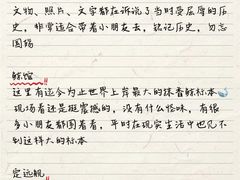 文物、照片、文字都在诉说了当时受屈辱的历
史，非常适合带着小朋友去，铭记历史，勿忘
国殇
鲸馆
这里有迄今为止世界上最大的抹香鲸标本🐋
现场看还是挺震撼的，没有什么怪味，有很
多小朋友都围着看，平时在现实生活中也见不
到这样大的标本
定远舰